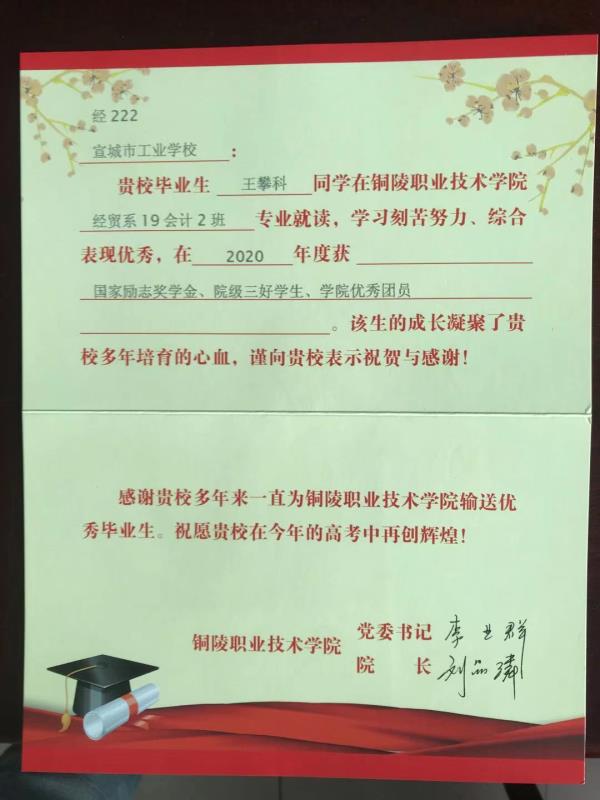 经222
宣城市工业学校：
贵校毕业生 王攀科 同学在铜陵职业技术学院
经贸系19会计2班 专业就读，学习刻苦努力、综合
表现优秀，在 2020 年度获
国家励志奖学金、院级三好学生、学院优秀团员
。该生的成长凝聚了贵
校多年培育的心血，谨向贵校表示祝贺与感谢！
感谢贵校多年来一直为铜陵职业技术学院输送优
秀毕业生。祝愿贵校在今年的高考中再创辉煌！
铜陵职业技术学院 党委书记 李业群
院 长 刘